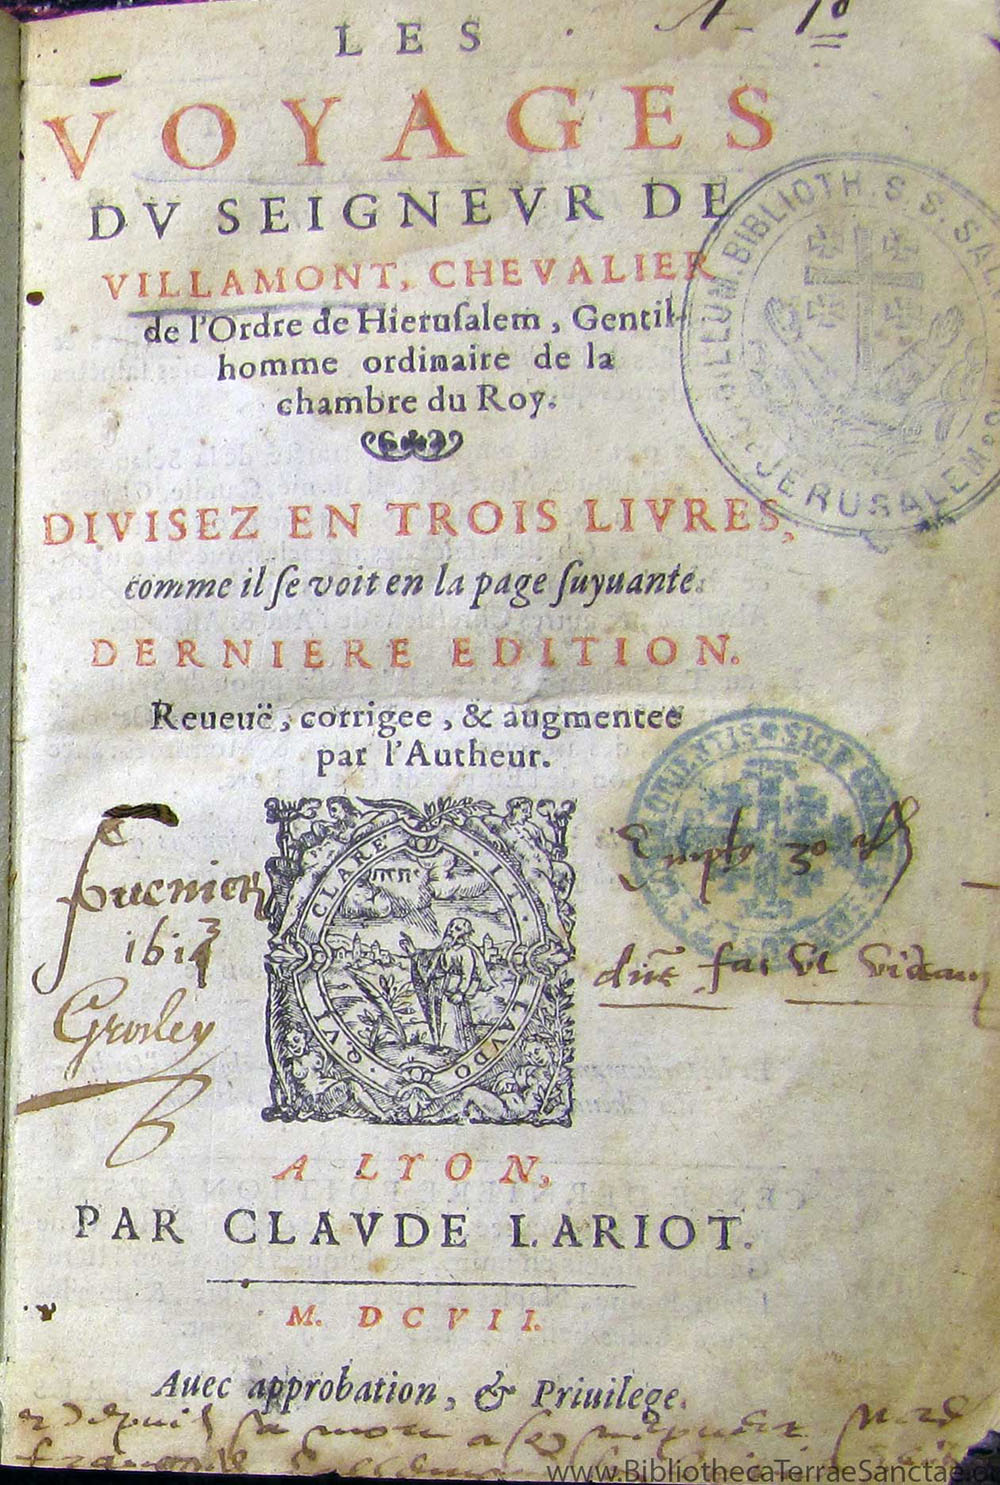 LES
VOYAGES
DV SEIGNEVR DE
VILLAMONT, CHEVALIER
de l'Ordre de Hieruſalem, Gentil-
homme ordinaire de la
chambre du Roy.
DIVISEZ EN TROIS LIVRES,
comme il ſe voit en la page ſuyuante.
DERNIERE EDITION.
Reueuë, corrigee, & augmentee
par l'Autheur.
BIBLIOTH. S. S. SAL
JERUSALEM
QVI CLARE I LAVDO
A LYON,
PAR CLAVDE LARIOT.
M. DCVII.
Auec approbation, & Priuilege.
www.BibliothecaTerraeSanctae.o